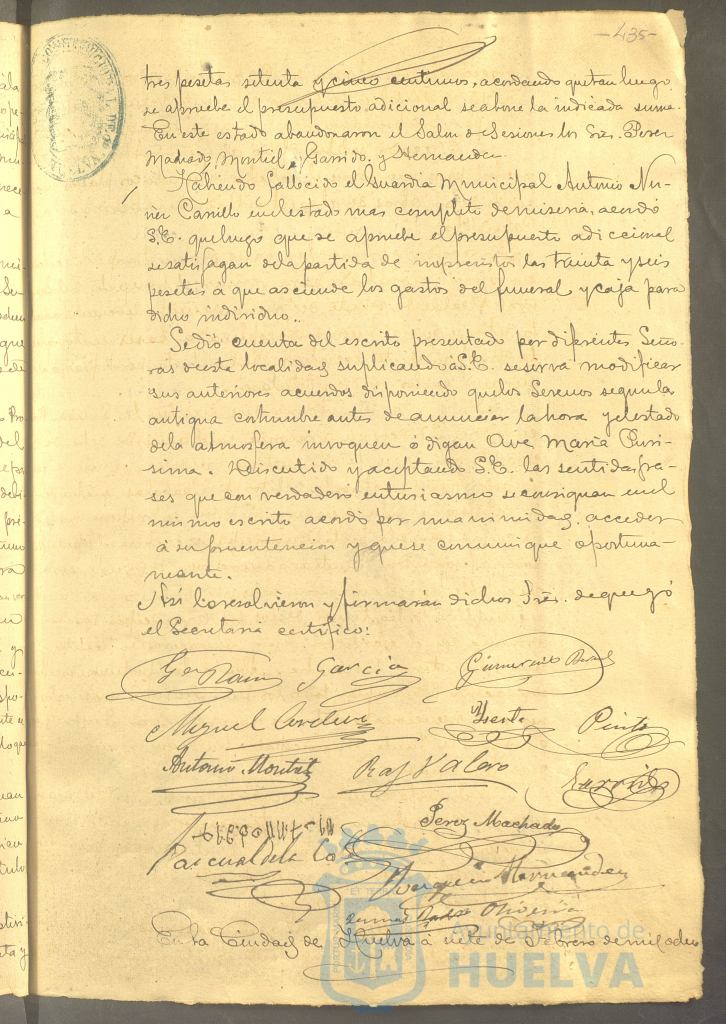 -435-
tres pesetas setenta y cinco centimos, acordando que tan luego
se apruebe el presupuesto adicional se abone la indicada suma.
En este estado abandonaron el Salon de Sesiones los Sres. Perez
Machado, Montiel, Garrido y Hernandez
Habiendo fallecido el Guardia Municipal Antonio Nu-
ñez Carrillo en el estado mas completo de miseria, acordó
S.E. que luego que se apruebe el presupuesto adiccional
se satisfagan de la partida de imprevistos las treinta y seis
pesetas á que asciende los gastos del funeral y caja para
dicho individuo..
Se dió cuenta del escrito presentado por diferentes Seño-
ras de esta localidad suplicando á S.E. se sirva modificar
sus anteriores acuerdos disponiendo que los Serenos segun la
antigua costumbre antes de anunciar la hora y el estado
de la atmosfera invoquen ó digan Ave Maria Puri-
sima. Discutido y aceptando S.E. las sentidas fra-
ses que con verdadero entusiasmo se consignan en el
mismo escrito acordó por unanimidad acceder
á su
y que se comunique oportuna-
mente.
Así lo resolvieron y firmarán dichos Sres. de que yó
el Secretario certifico:
Garcia
Miguel
Pinto
Antonio Montiel
Raf Valero
Garrido
Perez Machado
Pascual de la
Joaquin Hernandez
Oliveira
En la Ciudad de Huelva á siete de Febrero de mil ocho
Ayuntamiento de
HUELVA